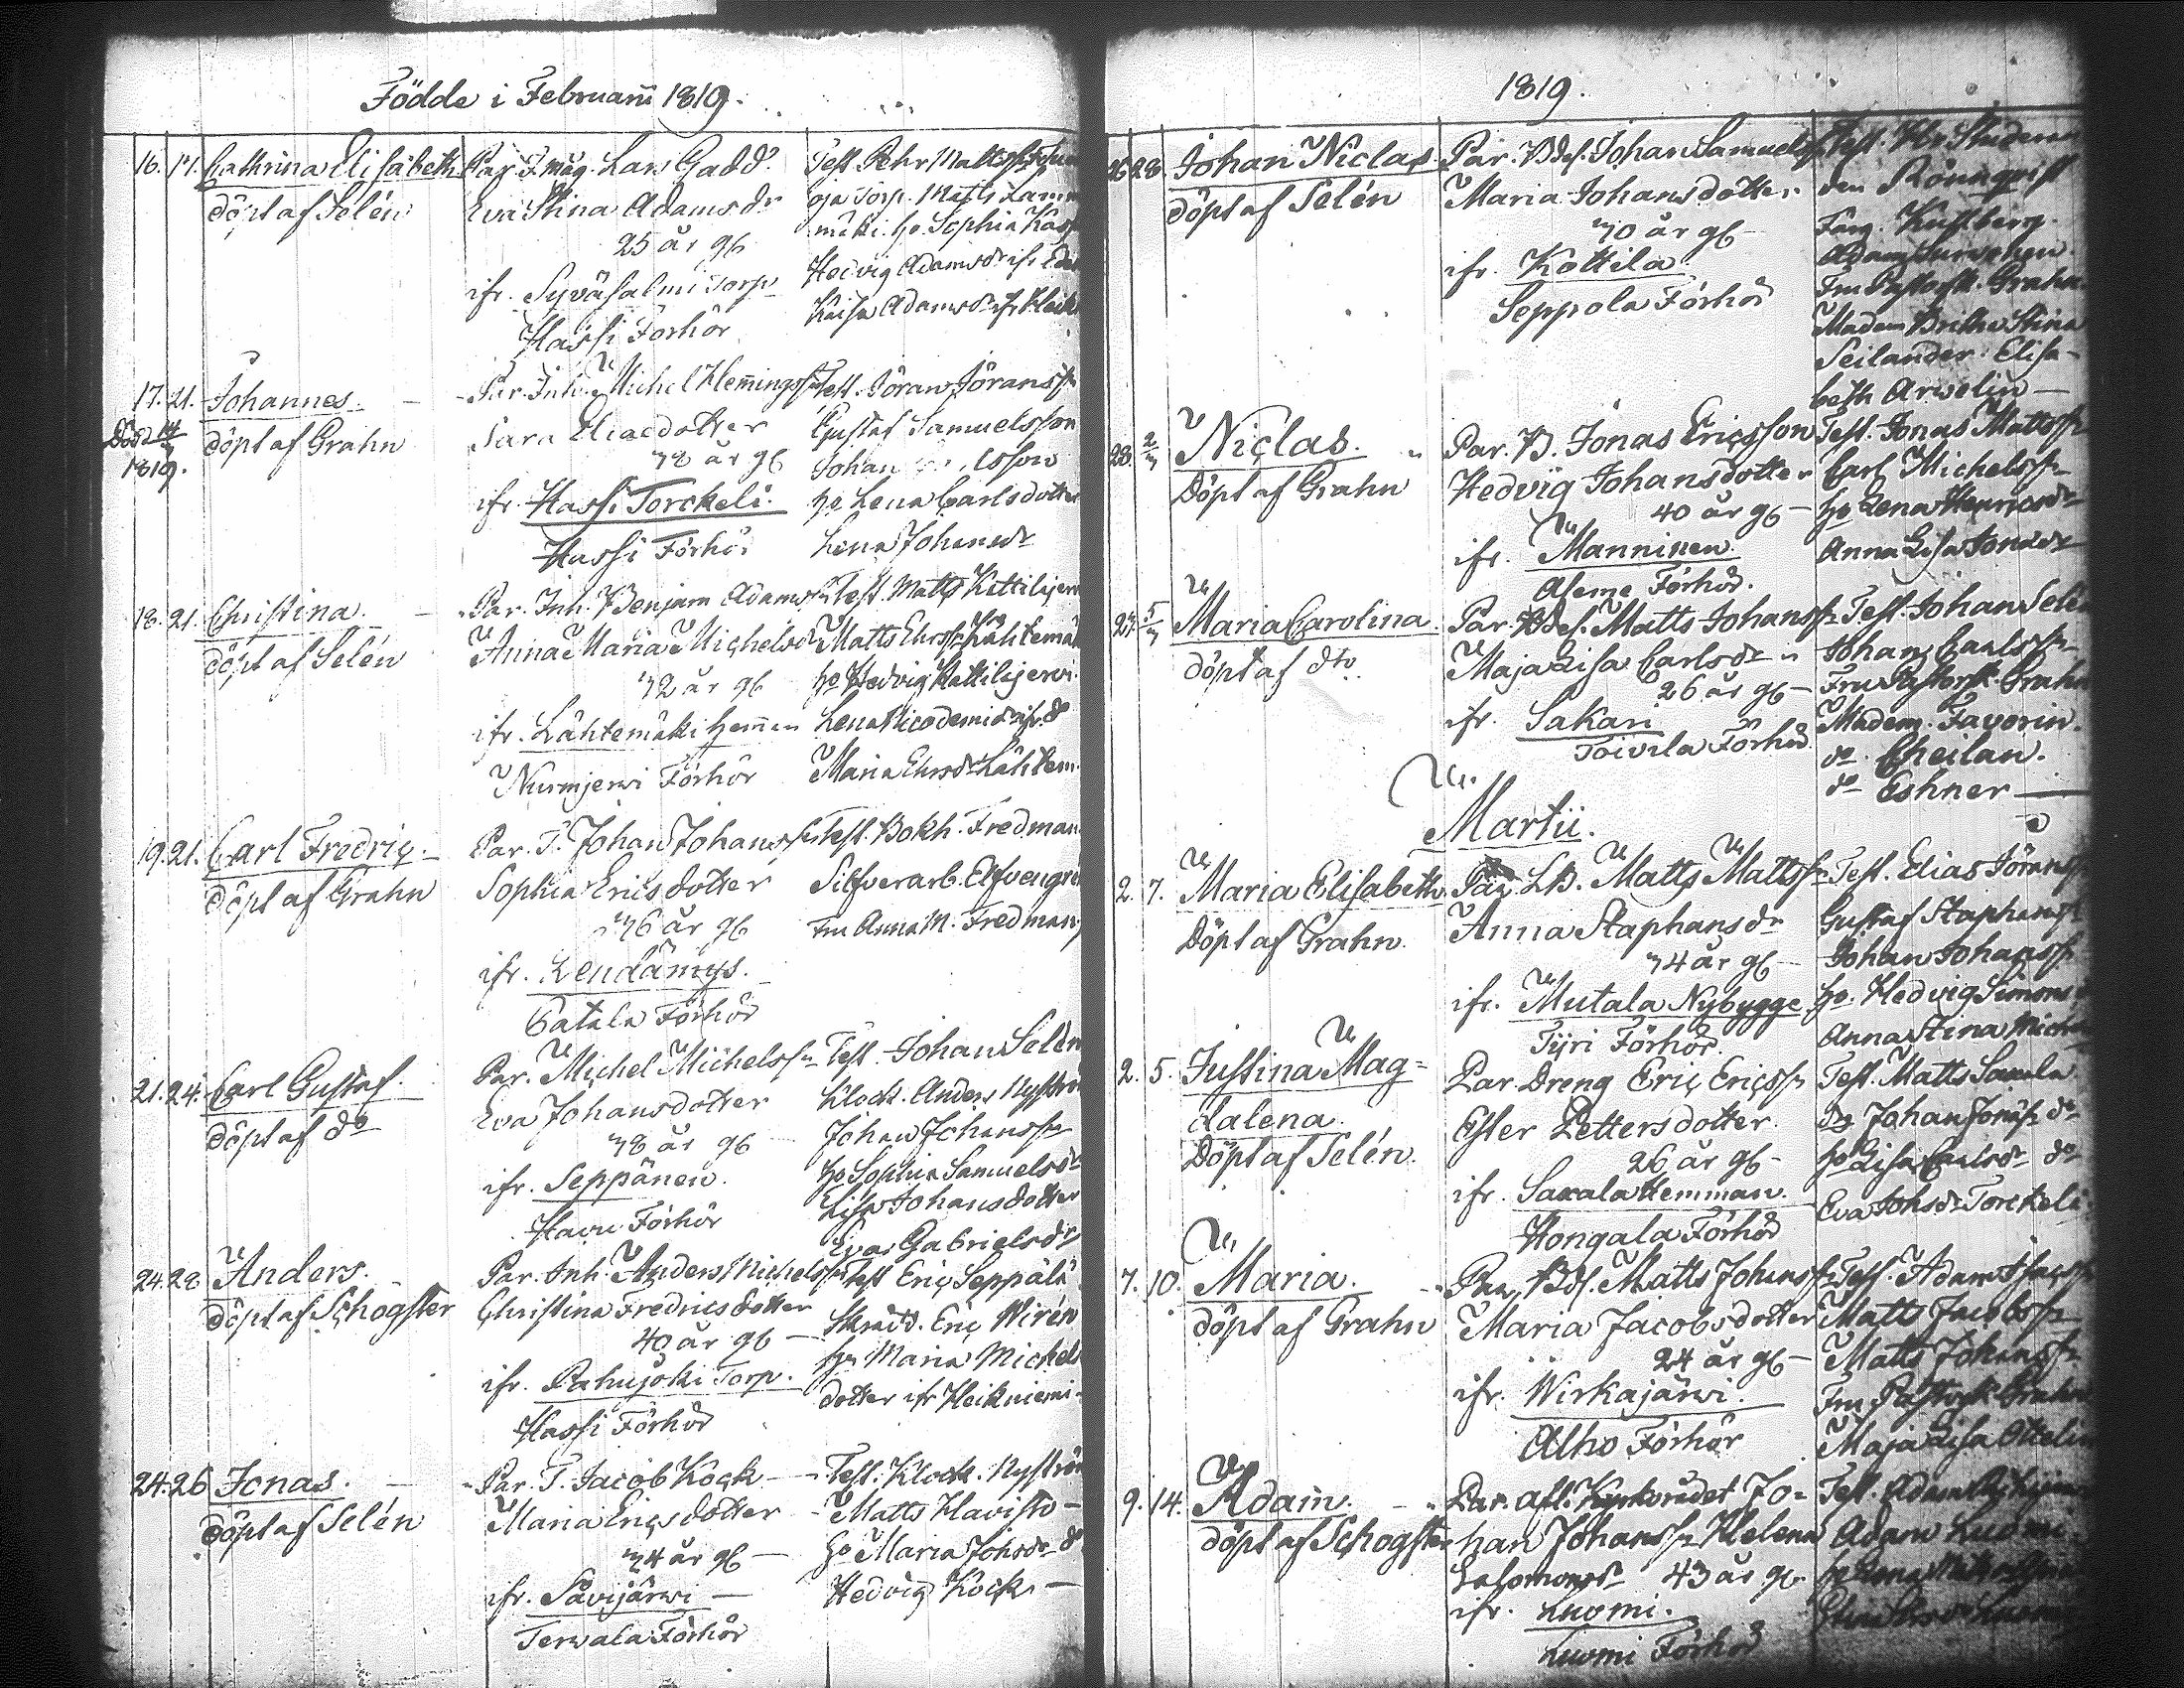 Födde i Februarii 1819.
16. 17. Cathrina Elisabeth
döpt af Selén
Par. Lars Gadd
Eva Stina Adamsdr
25 år gb
ifr. Syväsalmi Torp
Hassi Förhör
Test. Pehr Mattss
Torp. Matts
mäki. ho. Sophia
Hedvig Adamsdr ifr
Kaisa Adamsdr ifr
17. 21. Johannes.
Död 14/3
1819.
döpt af Grahn
Par. Inh. Michel Hemingss
Sara Eliaedotter
38 år gb
ifr. Hassi Torckeli.
Hassi Förhör
Test. Jöran Jöranss
Gustaf Samuelsson
Johan
ho Lena Carlsdotter
Lena Johansdr
18. 21. Christina.
döpt af Selén
Par. Inh. Benjam Adamss
Anna Maria Michelsd
32 år gb
ifr. Lähtemäki Hemn
Nurmjerwi Förhör
Test. Matts Kattiljerwi
Matts Ehrss Lähtemäk
ho Hedvig Kattilijerwi
Lena Nicodemidr ifr. do
Maria Ehrsdr Lähtem.
19. 21. Carl Fredric
döpt af Grahn
Par. T. Johan Johanss
Sophia Ericsdotter
36 år gb
ifr. Lendämys.
Patala Förhör
Test. Bokh. Fredman
Silfverarb. Elfvengren
Fru Anna M. Fredman
21. 24. Carl Gustaf.
döpt af do
Par. Michel Michelss
Eva Johansdotter
38 år gb
ifr. Seppänen.
Havu Förhör
Test. Johan Selén
Klock. Anders Nyström
Johan Johanss
ho Sophia Samuelsdr
Lisa Johansdotter
Eva Gabrielsdr
24. 28. Anders.
döpt af Schogster
Par. Inh. Anders Michelss
Christina Fredricsdotter
40 år gb
ifr. Pahujoki Torp.
Hassi Förhör
Test Eric Seppälä
Skrädd. Eric Wirén
ho Maria Michels
dotter ifr Heikniemi
24. 26 Jonas.
döpt af Selén
Par. T. Jacob Kock
Maria Ericsdotter
34 år gb
ifr. Savijärwi
Terwala Förhör
Test. Klock. Nyström
Matts Havisto
ho Maria Johsdr do
Hedvig Kock
1819.
26 28. Johan Niclas
döpt af Selén
Par. Bdes. Johan Samuelss
Maria Johansdotter
30 år gb
ifr. Kottila
Seppola Förhör
Test. Hr Studeran
den Rönnqvist
Färg. Kustberg.
Adam
Fru Pastorsk. Grahn
Madem Britha Stina
Seilander. Elisa-
beth Arwelin
28. 2/3 Niclas.
Döpt af Grahn
Par. B. Jonas Ericsson
Hedvig Johansdotter
40 år gb
ifr. Manninen.
Aseme Förhör.
Test. Jonas Mattss
Carl Michelss
ho Lena Henricsdr
Anna Lisa Jonaedr
27. 5/3 Maria Carolina.
döpt af dto
Par. Bdes. Matts Johanss
Maja Lisa Carlsdr
26 år gb
ifr. Sakari
Toivila Förhör
Test. Johan Selén
Johan Carlss
Fru Pastorsk. Grahn
Madem. Favorin.
do Cheilan.
do Eshner
Martii.
2. 7. Maria Elisabeth
Döpt af Grahn.
Par. LB. Matts Mattss
Anna Staphansdr
34 år gb
ifr. Mutala Nybygge
Tyri Förhör.
Test. Elias Jöranss
Gustaf Staphanss
Johan Johanss
ho. Hedvig Simons
Anna Stina Michels
2. 5. Justina Mag=
dalena.
Döpt af Selén.
Par. Dreng Eric Ericss
Ester Pettersdotter
26 år gb
ifr. Saxala Hemman.
Hongala Förhör
Test. Matts Saxala
Johan Jonass do
ho Lisa Carlsdr do
Eva Johsdr Torckeli
7. 10. Maria.
döpt af Grahn
Par. Bds. Matts Johanss
Maria Jacobsdotter
24 år gb
ifr. Wirkajärwi.
Alho Förhör
Test. Adam Isacss
Matts Jacobss
Matts Johanss
Fru Pastorsk Grahn
Maja Lisa Ottelin
9. 14. Adam.
döpt af Schogster
Par. afl. Kyrkovärdet Jo-
han Johanss Helena
Salomonsdr 43 år gb
ifr. Luomi.
Luomi Förhör
Test. Adam
Adam Luomi
ho Lena